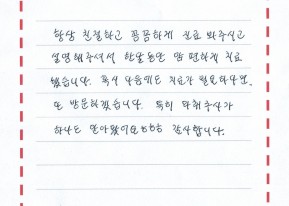 항상 친절하고 꼼꼼하게 진료 봐주시고
설명해주셔서 한달동안 맘 편하게 치료
했습니다. 혹시 다음에도 치료가 필요하다면
또 방문하겠습니다. 특히 마취주사가
하나도 안아팠어요 감사합니다.